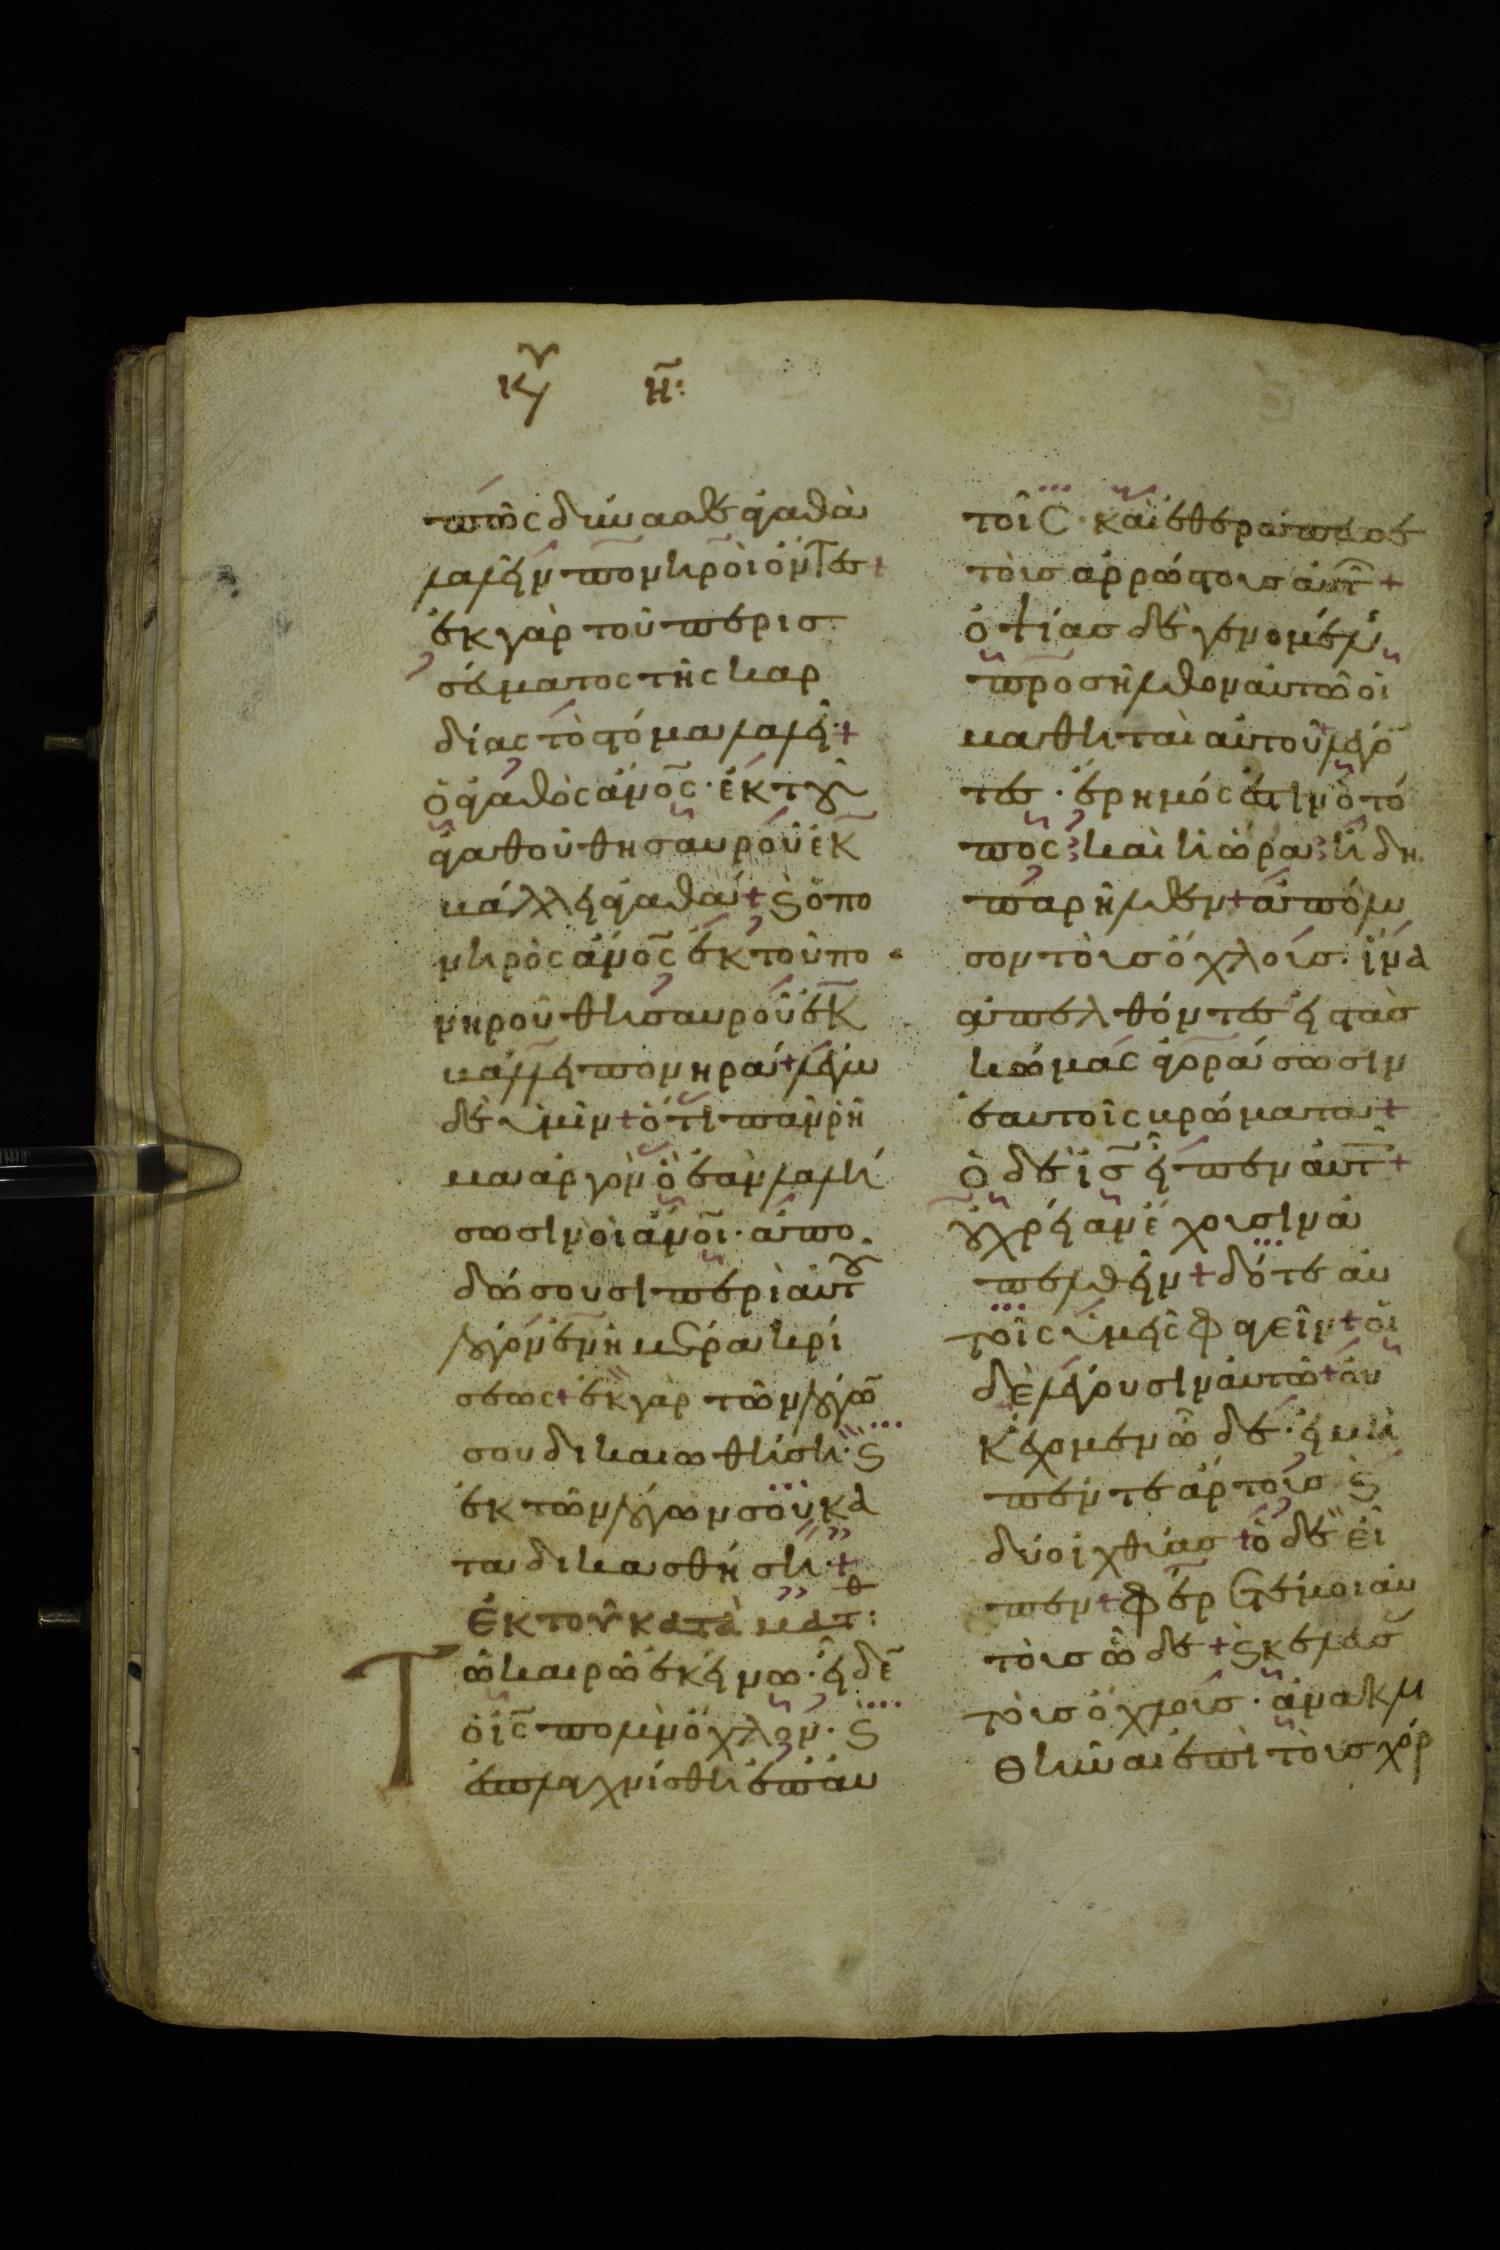 κυ η:
πῶς δύνασθε ἀγαθὰ
λαλεῖν πονηροὶ ὄντες
ἐκ γὰρ τοῦ περισ
σεύματος τῆς καρ
δίας τὸ στόμα λαλεῖ +
ὁ ἀγαθὸς ἄνος · ἐκ τοῦ
ἀγαθοῦ θησαυροῦ ἐκ
βάλλει ἀγαθά + ϗ ὁ πο
νηρὸς ἄνος ἐκ τοῦ πο
νηροῦ θησαυροῦ ἐκ
βάλλει πονηρά + λέγω
δὲ ὑμῖν + ὅτι πᾶν ῥῆ
μα ἀργὸν ὃ ἐὰν λαλή
σωσιν οἱ ἄνοι · ἀπο
δώσουσι περὶ αὐτοῦ
λόγον ἐν ἡμέρα κρί
σεως + ἐκ γὰρ τῶν λόγω
σου δικαιωθήση · ϗ
ἐκ τῶν λόγων σου κα
ταδικασθήση · +
Ἐκ τοῦ κατὰ ματθ :
Τῶ καιρῶ ἐκείνω · εἶδε
ὁ ις πολὺν ὄχλον · ϗ
ἐσπλαγχνίσθη ἐπ' αὐ
τοῖς · καὶ ἐθεράπευσε
τοὺς ἀρρώστους αὐτ +
ὀψίας δὲ γενομένης
προσῆλθον αὐτῶ οἱ
μαθηταὶ αὐτοῦ λέγο
τες · ἔρημός ἐστιν ὁ τό
πος καὶ ἡ ὥρα ἤδη
παρῆλθεν + ἀπόλυ
σον τοὺς ὄχλους · ἵνα
ἀπελθόντες εἰς τὰς
κώμας ἀγοράσωσιν
ἑαυτοῖς βρώματα +
ὁ δὲ ις εἶπεν αὐτ +
οὐ χρείαν ἔχουσιν ἀ
πελθεῖν + δότε αὐ
τοῖς ὑμεῖς φαγεῖν + οἱ
δὲ λέγουσιν αὐτῶ + οὐ
κ ἔχομεν ὧδε · εἰ μὴ
πέντε ἄρτους ϗ
δύο ἰχθύας + ὁ δὲ εἶ
πεν + φέρετέ μοι αὐ
τοὺς ὧδε + ϗ κελεύσ
τοὺς ὄχλους · ἀνακλι
θῆναι ἐπὶ τοὺς χόρ